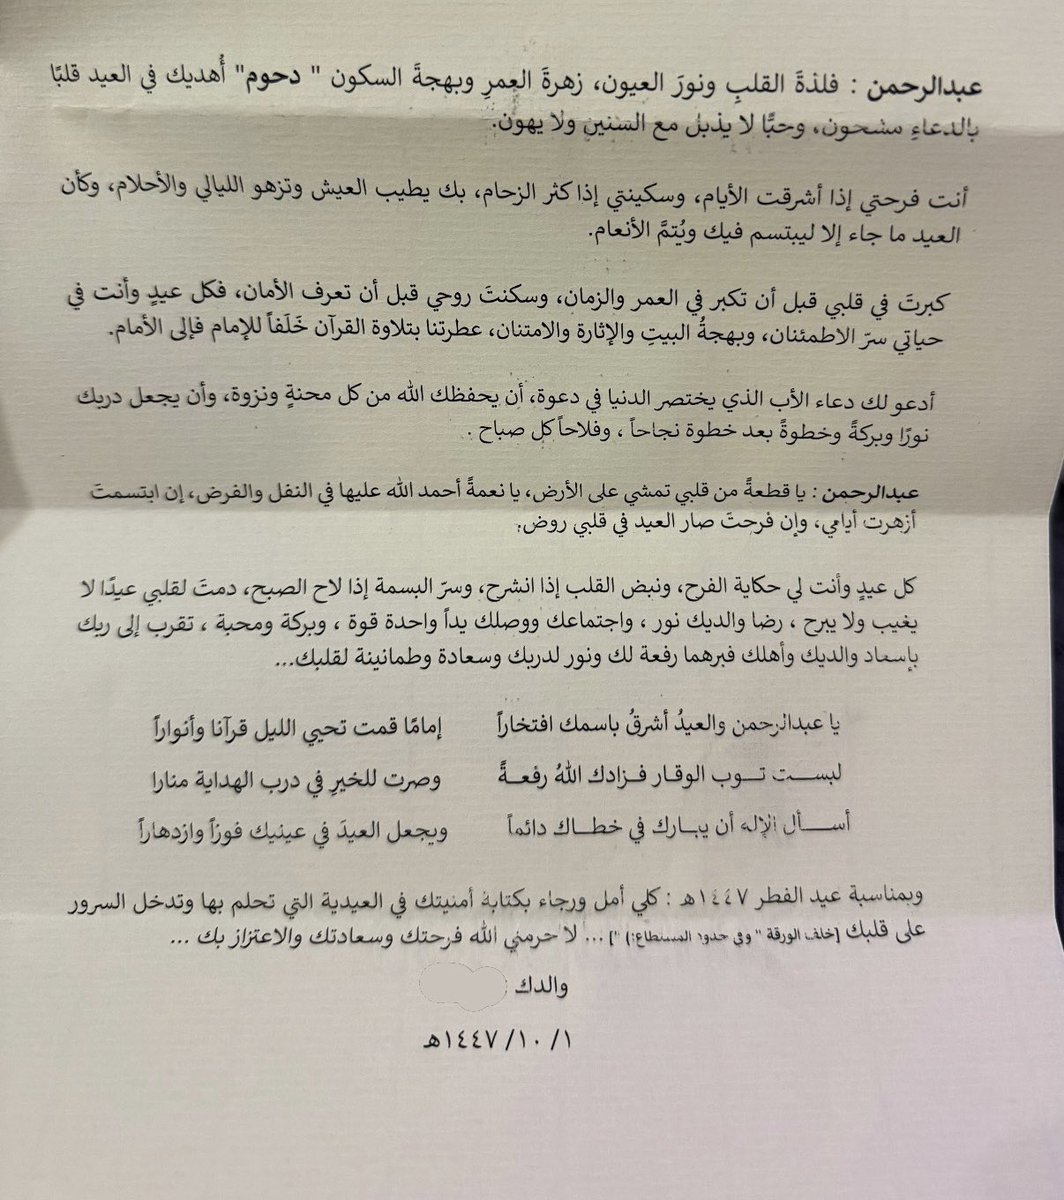 عبدالرحمن : فلذةَ القلبِ ونورَ العيون، زهرةَ العمرِ وبهجةَ السكون " دحوم" أُهديك في العيد قلبًا
بالدعاءِ مشحون، وحبًّا لا يذبل مع السنين ولا يهون.
أنت فرحتي إذا أشرقت الأيام، وسكينتي إذا كثر الزحام، بك يطيب العيش وتزهو الليالي والأحلام، وكأن
العيد ما جاء إلا ليبتسم فيك ويُتمَّ الأنعام.
كبرتَ في قلبي قبل أن تكبر في العمر والزمان، وسكنتَ روحي قبل أن تعرف الأمان، فكل عيدٍ وأنت في
حياتي سرّ الاطمئنان، وبهجةُ البيتِ والإثارة والامتنان، عطرتنا بتلاوة القرآن خَلَفاً للإمام فإلى الأمام.
أدعو لك دعاء الأب الذي يختصر الدنيا في دعوة، أن يحفظك الله من كل محنةٍ ونزوة، وأن يجعل دربك
نورًا وبركةً وخطوةً بعد خطوة نجاحاً ، وفلاحاً كل صباح .
عبدالرحمن : يا قطعةً من قلبي تمشي على الأرض، يا نعمةً أحمد الله عليها في النفل والفرض، إن ابتسمتَ
أزهرت أيامي، وإن فرحتَ صار العيد في قلبي روض.
كل عيدٍ وأنت لي حكاية الفرح، ونبض القلب إذا انشرح، وسرّ البسمة إذا لاح الصبح، دمتَ لقلبي عيدًا لا
يغيب ولا يبرح ، رضا والديك نور ، واجتماعك ووصلك يداً واحدة قوة ، وبركة ومحبة ، تقرب إلى ربك
بإسعاد والديك وأهلك فبرهما رفعة لك ونور لدربك وسعادة وطمانينة لقلبك...
يا عبدالرحمن والعيدُ أشرقُ باسمك افتخاراً إمامًا قمت تحيي الليل قرآنا وأنواراً
لبســـت ثـــوب الوقـار فـزادك اللهُ رفعـــةً وصرت للخيرِ في درب الهداية منارا
أســـأل الإله أن يبـارك في خطـاك دائماً ويجعل العيدَ في عينيك فوزاً وازدهاراً
وبمناسبة عيد الفطر ١٤٤٧هـ : كلي أمل ورجاء بكتابة أمنيتك في العيدية التي تحلم بها وتدخل السرور
على قلبك [خلف الورقة " وفي حدود المستطاع:) "] ... لا حرمني الله فرحتك وسعادتك والاعتزاز بك ...
والدك
١/ ١٠/ ١٤٤٧هـ